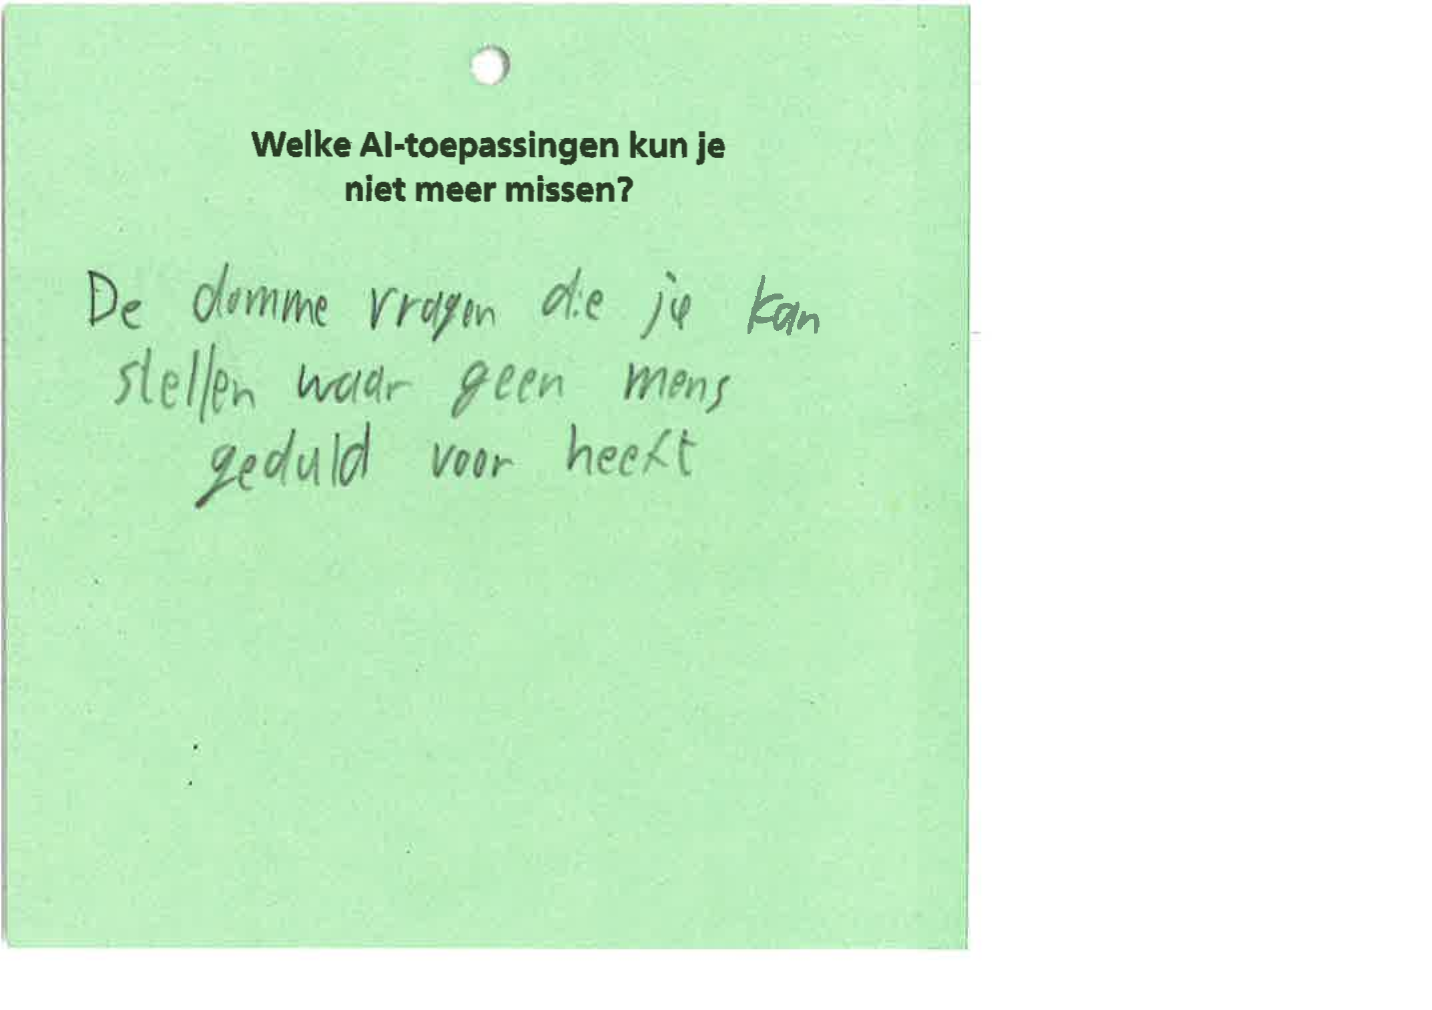 Welke AI-toepassingen kun je
niet meer missen?
De domme vragen die je kan
stellen waar geen mens
geduld voor heeft